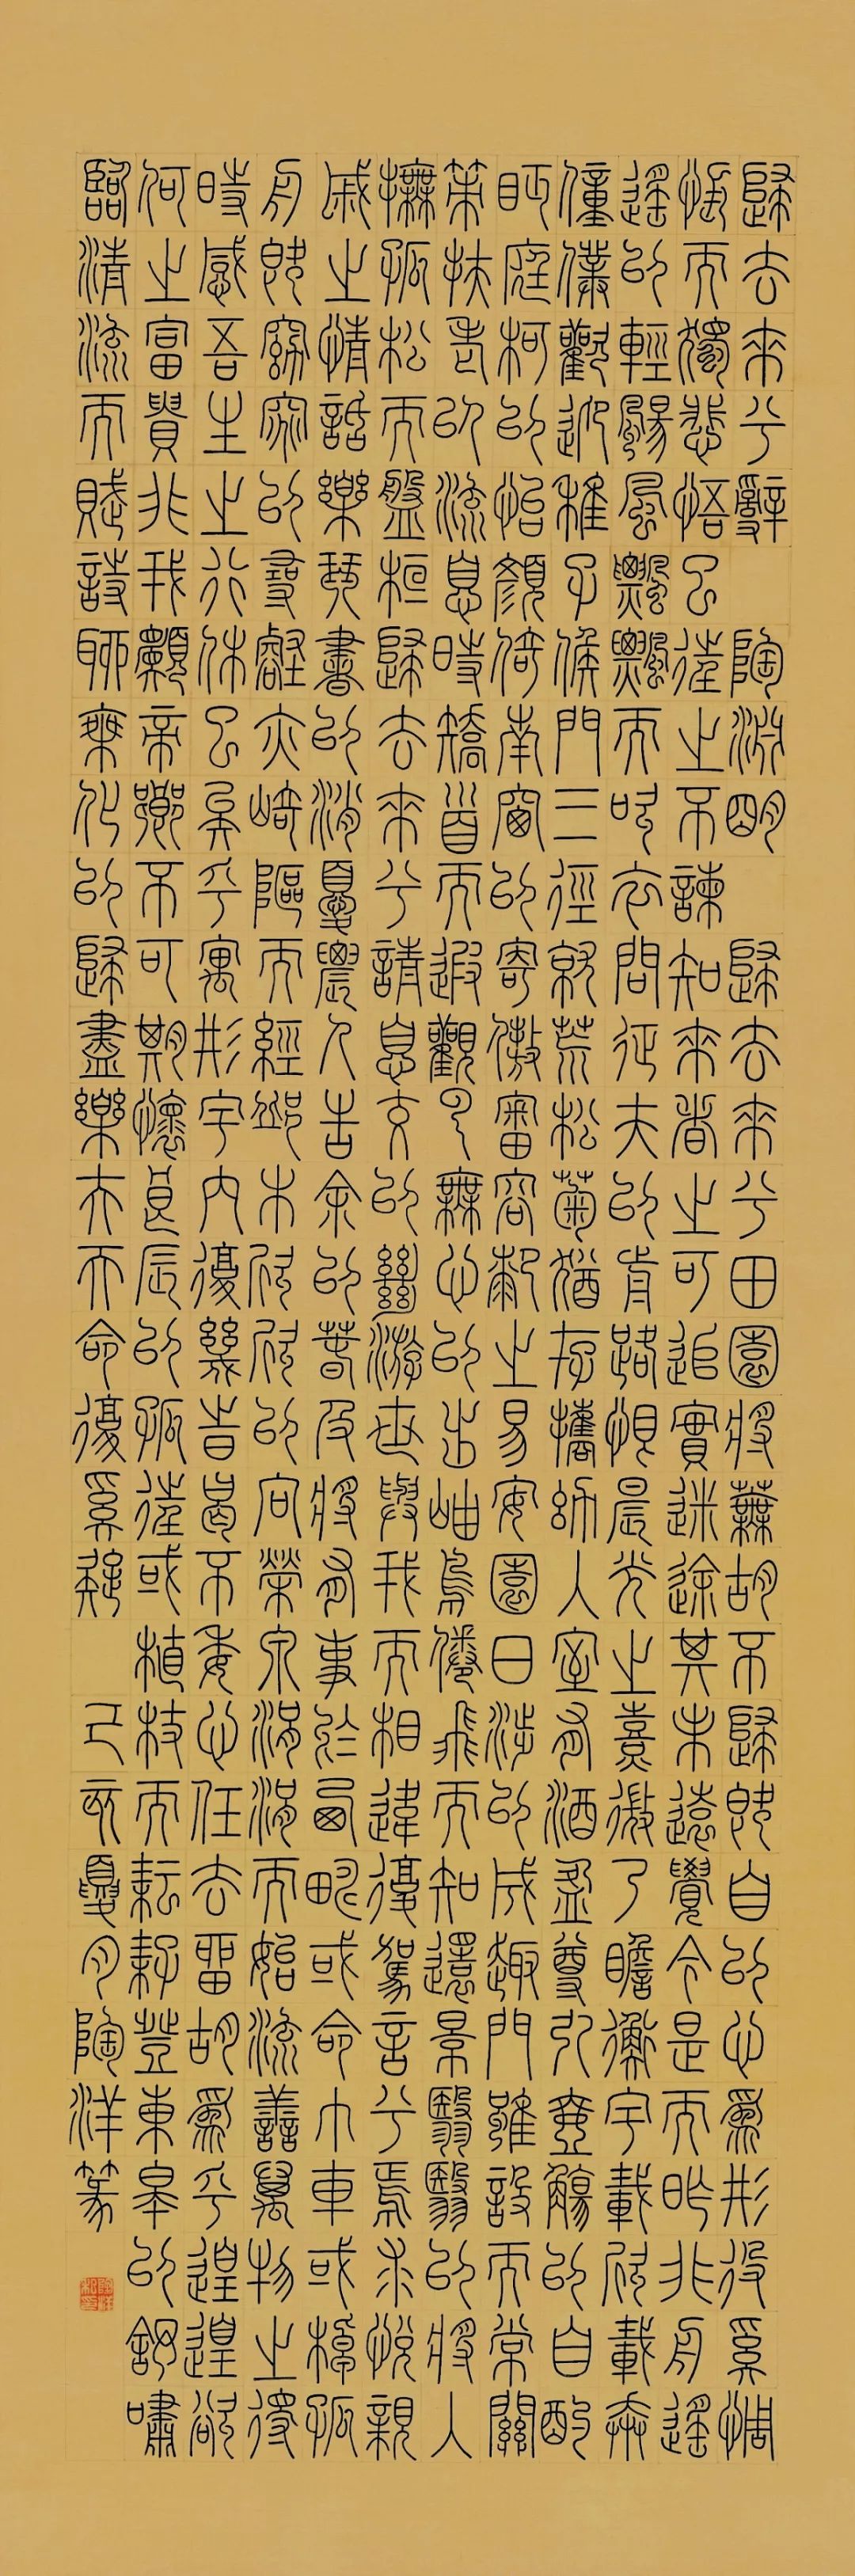 歸去來兮辭 陶淵明 歸去來兮田園將蕪胡不歸既自以心為形役奚惆
悵而獨悲悟已往之不諫知來者之可追實迷途其未遠覺今是而昨非舟遙
遙以輕颺風飄飄而吹衣問征夫以前路恨晨光之熹微乃瞻衡宇載欣載奔
僮僕歡迎稚子候門三徑就荒松菊猶存攜幼入室有酒盈尊引壺觴以自酌
眄庭柯以怡顏倚南窗以寄傲審容膝之易安園日涉以成趣門雖設而常關
策扶老以流息時矯首而遐觀雲無心以出岫鳥倦飛而知還景翳翳以將入
撫孤松而盤桓歸去來兮請息交以絕游世與我而相違復駕言兮焉求悅親
戚之情話樂琴書以消憂農人告余以春及將有事於西疇或命巾車或棹孤
舟既窈窕以尋壑亦崎嶇而經丘木欣欣以向榮泉涓涓而始流善萬物之得
時感吾生之行休已矣乎寓形宇內復幾時曷不委心任去留胡為乎遑遑欲
何之富貴非我願帝鄉不可期懷良辰以孤往或植杖而耘耔登東皋以舒嘯
臨清流而賦詩聊乘化以歸盡樂夫天命復奚疑 己亥夏月陶洋篆